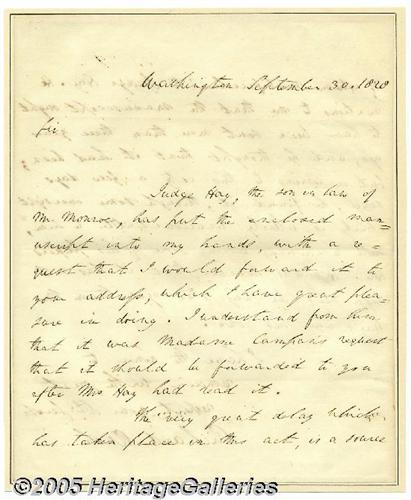 Washington September 30. 1828
Sir
Judge Hay, the son in law of
Mr. Monroe, has put the enclosed man=
uscript into my hands, with a re=
quest that I would forward it to
your address, which I have great plea=
sure in doing. I understand from him
that it was Madame Campans request
that it should be forwarded to you
after Mrs Hay had read it.
The very great delay which
has taken place in this act, is a source
©2005 HeritageGalleries